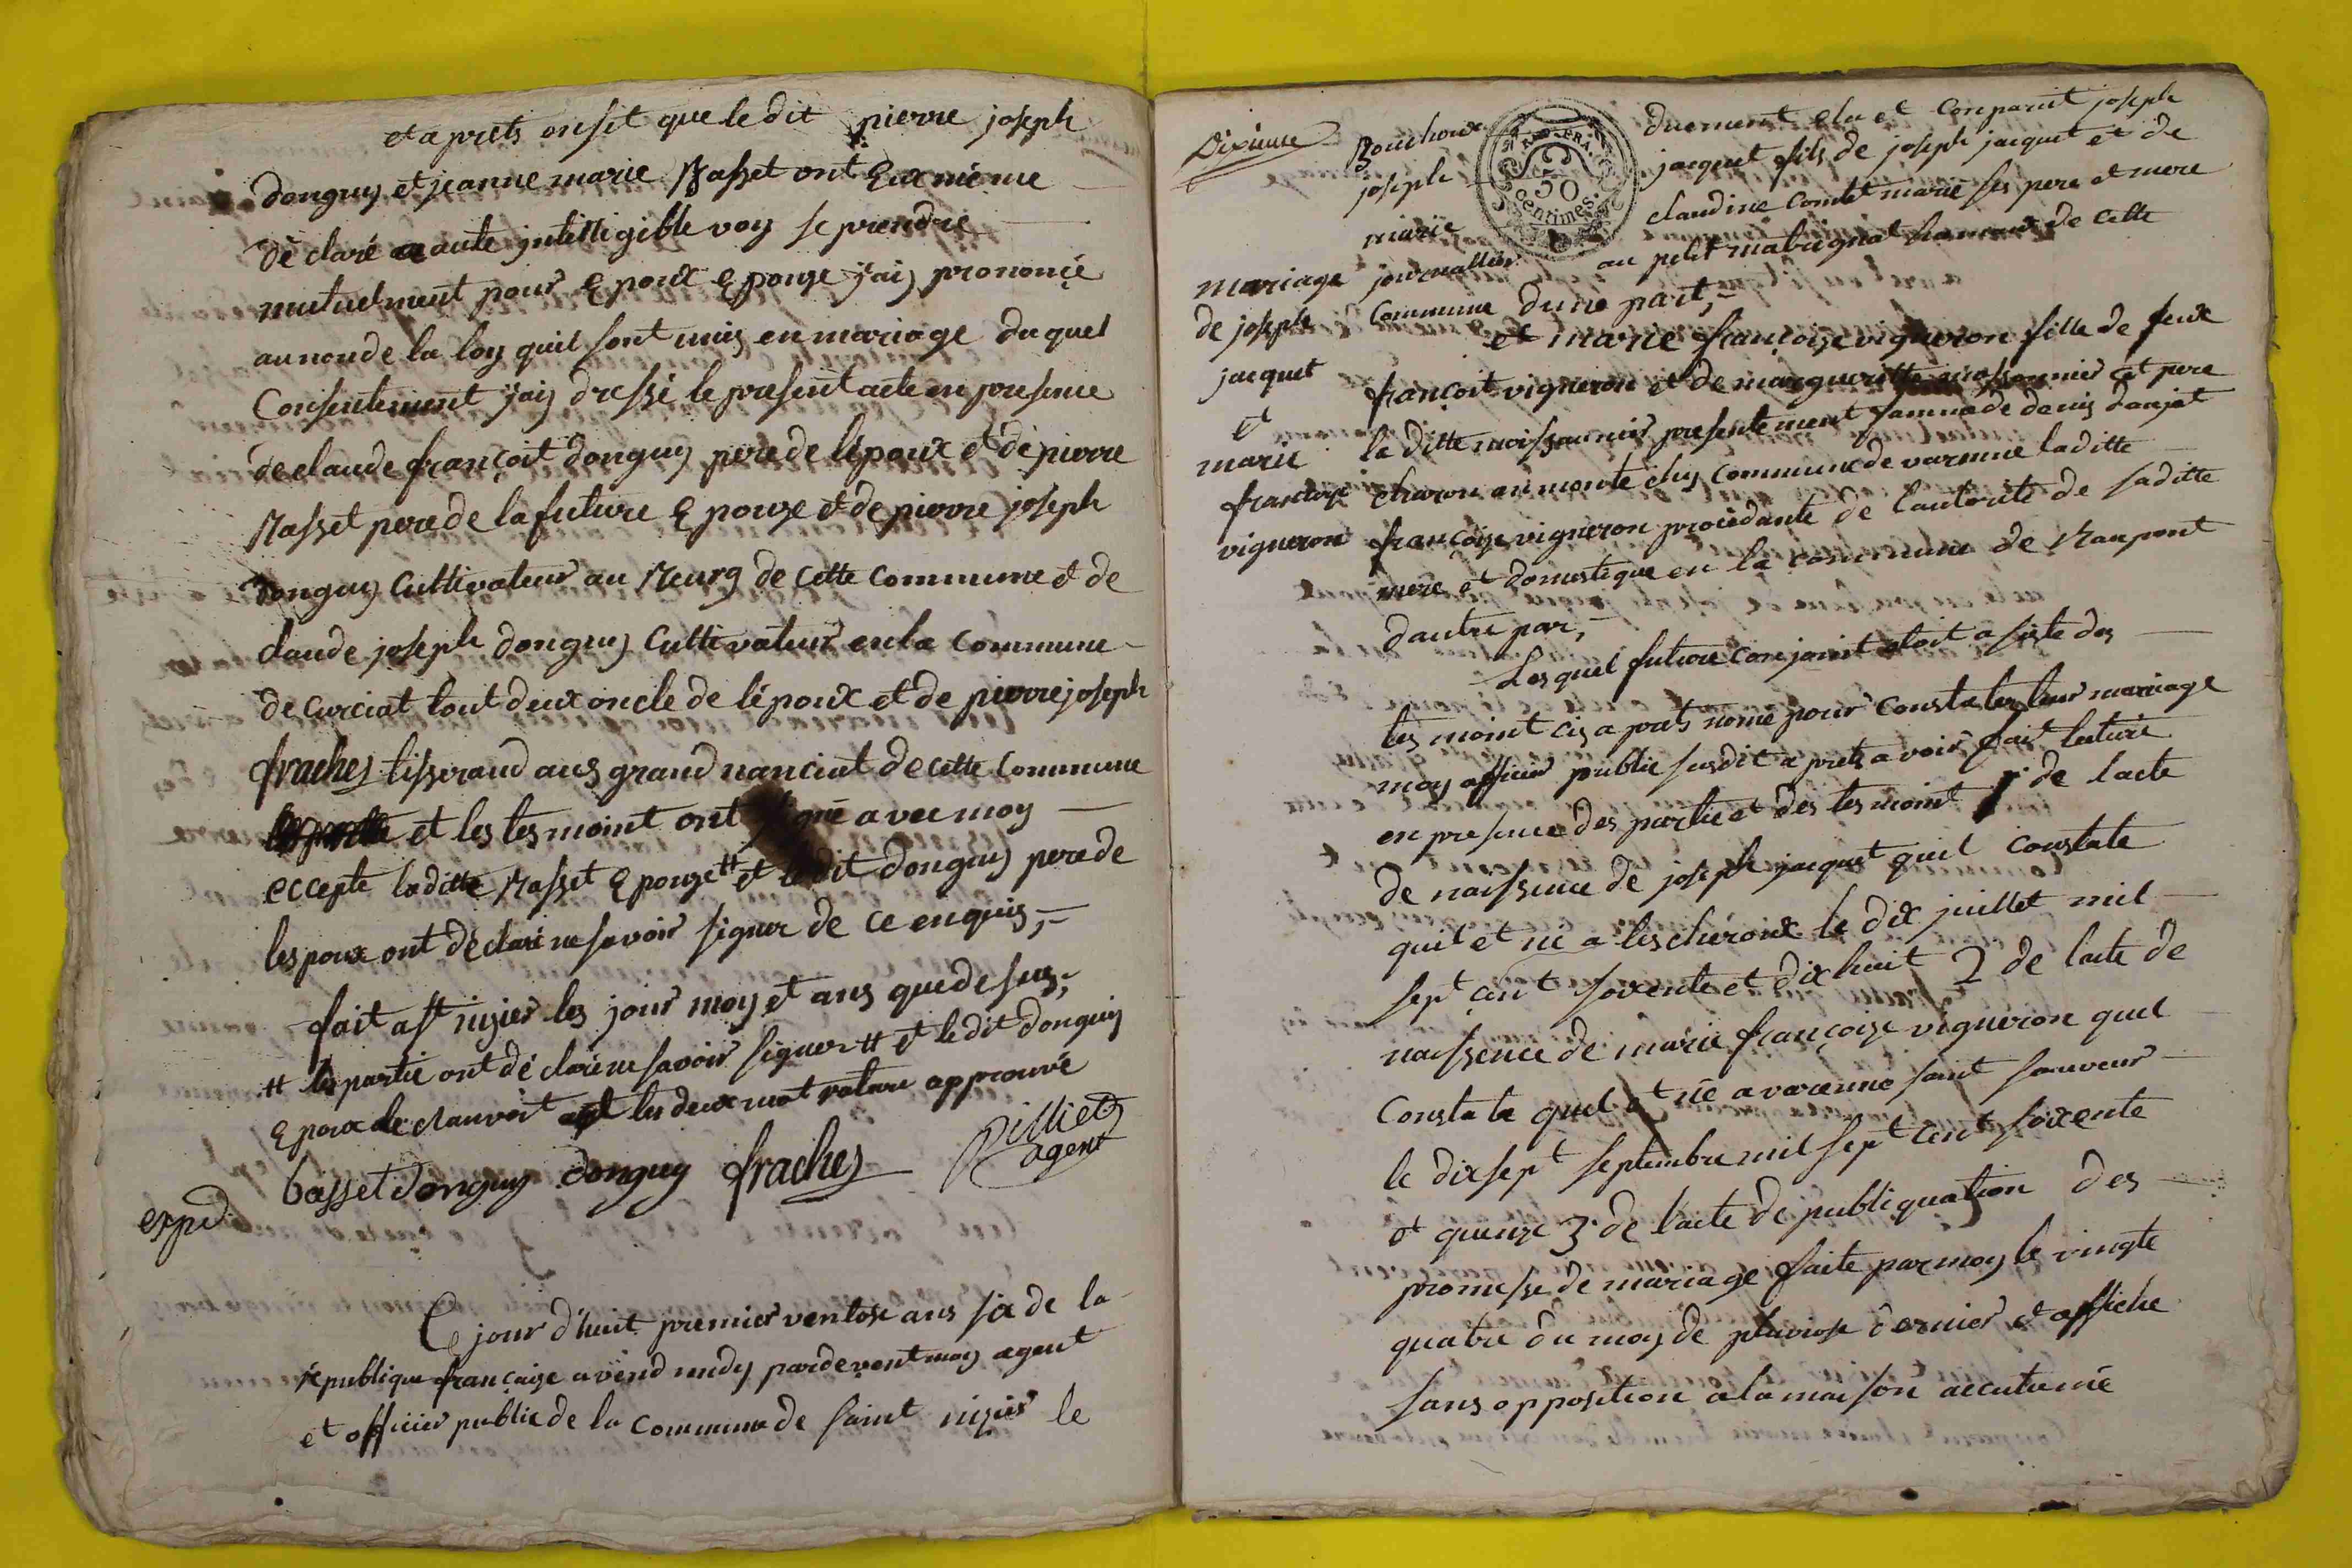 et a prets onsit que le dit pierre joseph
donguy et jeanne marie Basset ont Eux mème
déclaré a aute jntelligible voy se prendre
mutuelment pour Epoux Epouze j'aij prononcé
au nom de la loy quil sont unis en mariage duquel
Consentement j'aij dressé le present acte en presence
de claude françoit donguy pere de lépoux et de pierre
Basset pere de la future Epouze et de pierre joseph
donguy Cultivateur au Beurg de cette commune et de
claude joseph donguy Cultivateur en la Commune
de curciat tout deux oncle de lépoux et de pierre joseph
frachey tisserand aus grand nanciat de cette commune
et les tesmoint ont signé avec moy
eccepte laditte Basset Epouze # et le dit donguy pere de
lespoux ont déclaré ne savoir signer de ce enquis ;-
fait a St nizier les jour moy et ans que desus ;
# les partie ont dé claré ne savoir signer # et le dit donguy
Epoux de clauvoit les deux mot rature approuvé
basset donguy donguy frachey Billiet
agent
expd.
Ce jour d'huit premier ventose ans six de la
république françaize avend midy pardevent moy agent
et officier public de la commune de saint nizier le
Dixieme
Bouchoux
joseph
marie
journallier
REP. FRA.
50
centimes.
duement elu et Comparut joseph
jacquet fils de joseph jacquet et de
claudine comtet marié ses pere et mere
au petit matrignat hameaux de cette
Commune dune part ;-
mariage
de joseph
jacquet
et
marie
françoize
vigneron
et marie françoize vigneron fille de feux
françoit vigneron et de margueritte moissonnier cet pere
la ditte moissonnier presentement famme de denis danjat
charon au monte chy commune de varenne laditte
françoize vigneron procédante de l'autorité de saditte
mere et domestique en la commune de Raupont
dautre par,-
Lesquel future conjoint etoit a siste des
tesmoint cy a prets nomé pour Constater leur mariage
moy officier public susdit a prets avoir fait lecture
en presence des partie et des tesmoint 1° de lacte
de naissence de joseph jacquet quil constate
quil et né a lescheroux le dix juillet mil
sept cent soxente et dix huit 2 de lacte de
naissence de marie françoize vigneron quel
Constate quel et née a varenne saint sauveur
le dix sept septembre mil sept cent soixente
et quenze 3° de l'acte de publiquation des
promesse de mariage faite par moy le vingte
quatre du moy de pluviose dernier et affiche
sans opposition a la maison accutumé